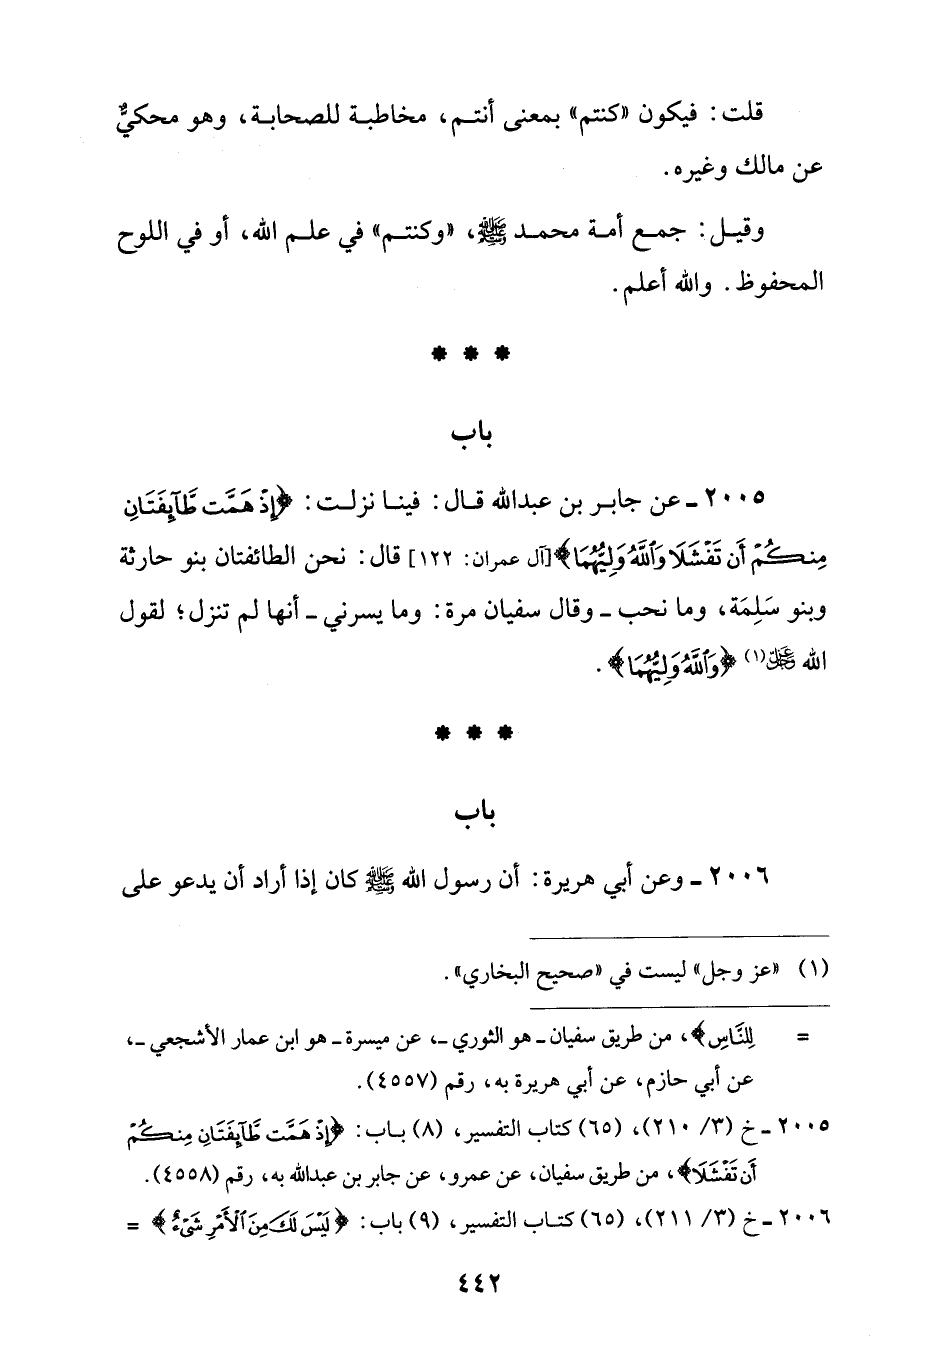 قلت: فيكون «كنتم» بمعنى أنتم، مخاطبة للصحابة، وهو محكيٌّ
عن مالك وغيره.
وقيل: جمع أمة محمد ﷺ، «وكنتم» في علم الله، أو في اللوح
المحفوظ. والله أعلم.
* * *
باب
٢٠٠٥ - عن جابر بن عبدالله قال: فينا نزلت: ﴿إِذْ هَمَّت طَّآئِفَتَانِ
مِنكُمْ أَن تَفْشَلَا وَٱللَّهُ وَلِيُّهُمَا﴾ [آل عمران: ١٢٢] قال: نحن الطائفتان بنو حارثة
وبنو سَلِمَة، وما نحب - وقال سفيان مرة: وما يسرني - أنها لم تنزل؛ لقول
الله عز وجل(١) ﴿وَٱللَّهُ وَلِيُّهُمَا﴾.
* * *
باب
٢٠٠٦ - وعن أبي هريرة: أن رسول الله ﷺ كان إذا أراد أن يدعو على
(١) «عز وجل» ليست في «صحيح البخاري».
= لِلنَّاسِ﴾، من طريق سفيان - هو الثوري -، عن ميسرة - هو ابن عمار الأشجعي -،
عن أبي حازم، عن أبي هريرة به، رقم (٤٥٥٧).
٢٠٠٥ - خ (٣/ ٢١٠)، (٦٥) كتاب التفسير، (٨) باب: ﴿إِذْ هَمَّت طَّآئِفَتَانِ مِنكُمْ
أَن تَفْشَلَا﴾، من طريق سفيان، عن عمرو، عن جابر بن عبدالله به، رقم (٤٥٥٨).
٢٠٠٦ - خ (٣/ ٢١١)، (٦٥) كتاب التفسير، (٩) باب: ﴿لَيْسَ لَكَ مِنَ ٱلْأَمْرِ شَىْءٌ﴾ =
٤٤٢